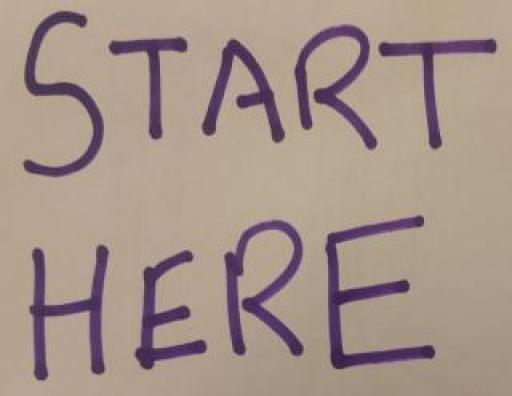 START
HERE